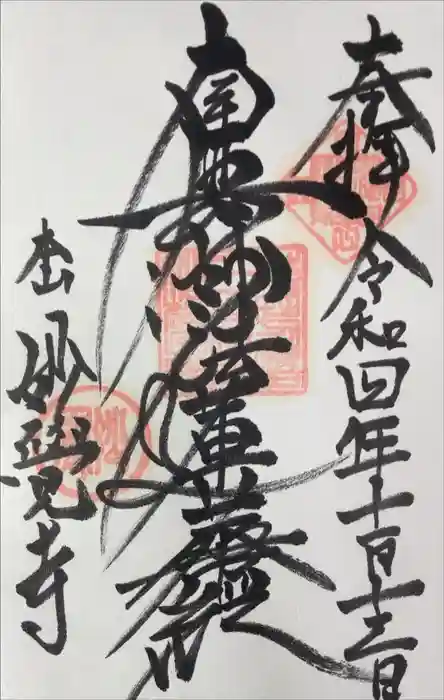 奉拝 令和四年十一月十三日
南無妙法蓮華経
本山 妙覺寺